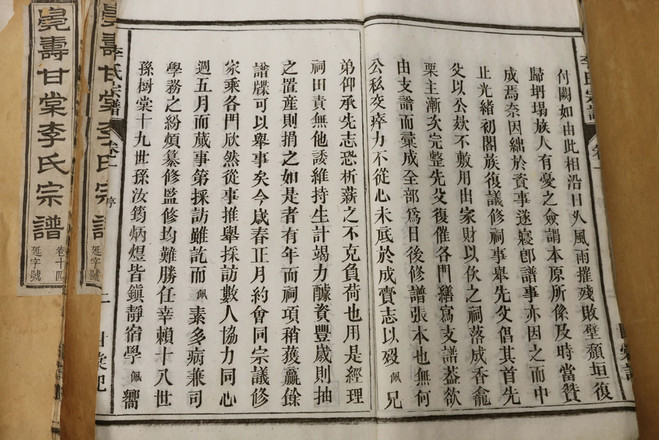 李氏宗譜
付闕如由此相沿日久風雨摧殘敗壁頹垣復
歸坍塌族人有憂之僉謂本原所係及時當贊
成焉奈因絀於資事遂寢卽譜事亦因之而中
止光緒初闔族復議修祠事舉先父倡其首先
父以公欵不敷用出家財以佽之祠落成香龕
栗主漸次完整先父復催各門繕寫支譜葢欲
由支譜而彙成全部爲日後修譜張本也無何
公私交瘁力不從心未底於成賫志以歿佩兄
弟仰承先志恐析薪之不克負荷也用是經理
祠田責無他諉維持生計竭力醵資豐歲則抽
之置產則捐之如是者有年而祠項稍獲羸餘
譜牒可以舉事矣今歲春正月約會同宗議修
家乘各門欣然從事推舉採訪數人協力同心
週五月而蕆事第採訪雖訖而佩素多病兼司
學務之紛煩纂修監修均難勝任幸賴十八世
孫樹棠十九世孫汝筠炳燈皆鎭靜宿學佩嚮
李氏宗譜
甘棠記
壽甘棠李氏宗譜
延字號
壽甘棠李氏宗譜
卷十四
延字號